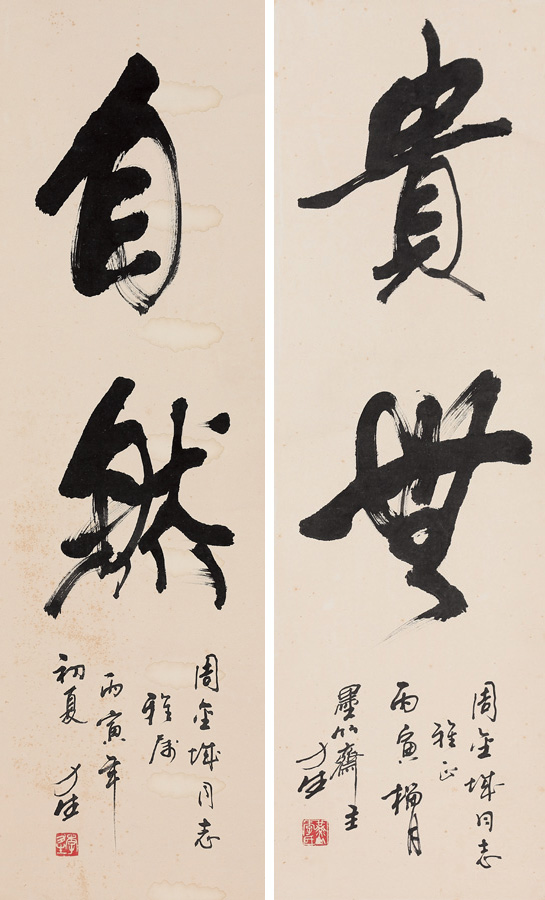 貴
周金城同志
雅正
丙寅榴月
墨竹齋主
自然
周金城同志
雅属
丙寅年
初夏